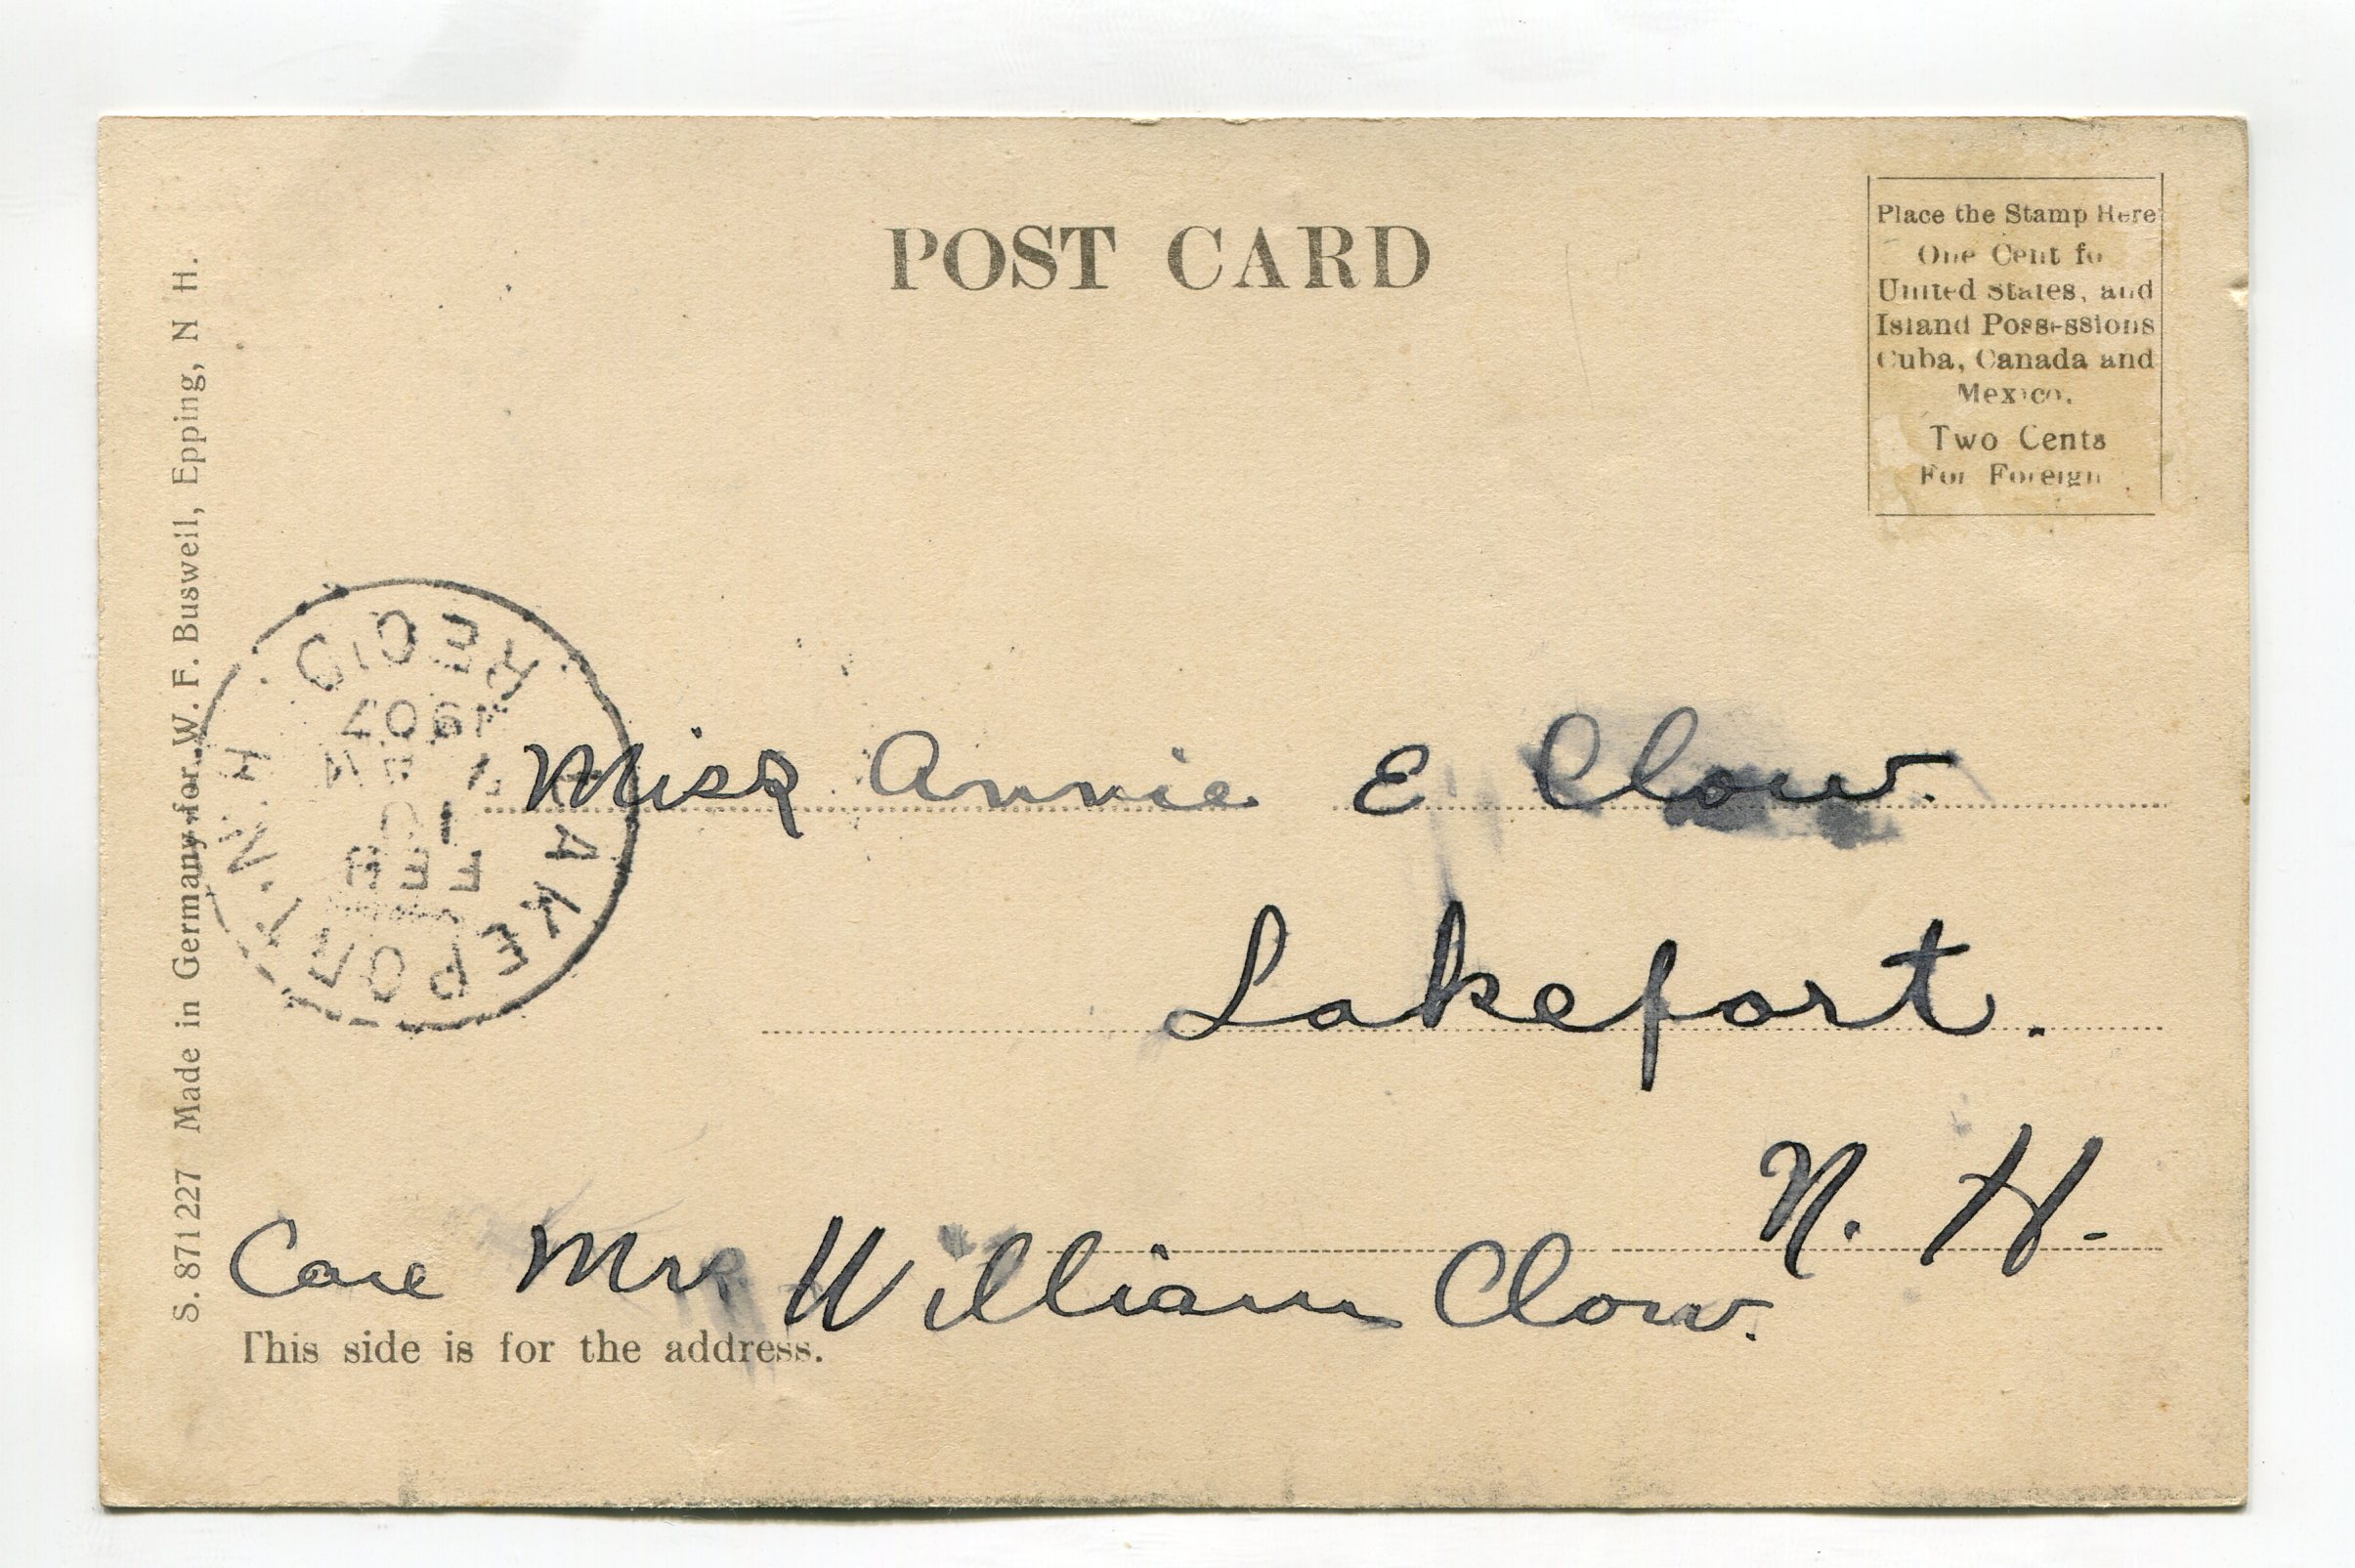 POST CARD
Place the Stamp Here
One Cent fo
United States, and
Island Possessions
Cuba, Canada and
Mexico.
Two Cents
For Foreign
S. 871227 Made in Germany for W. F. Buswell, Epping, N H.
LAKEPORT. N. H.
FEB
1907
REC'D
Miss Annie E Clow.
Lakeport.
N. H.
Care Mrs William Clow.
This side is for the address.